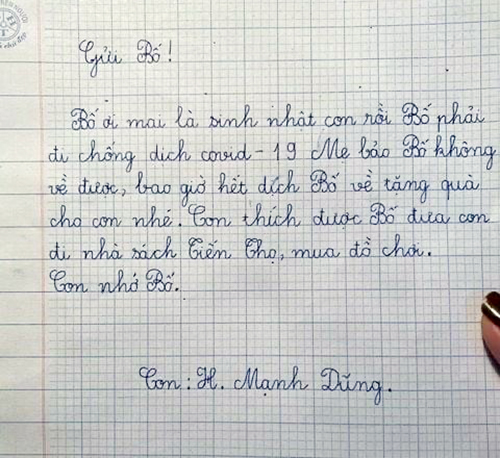 Gửi Bố!
Bố ơi mai là sinh nhật con rồi Bố phải
đi chống dịch covid-19 Mẹ bảo Bố không
về được, bao giờ hết dịch Bố về tặng quà
cho con nhé. Con thích được Bố đưa con
đi nhà sách Tiến Thọ, mua đồ chơi.
Con nhớ Bố.
Con: H. Mạnh Dũng.